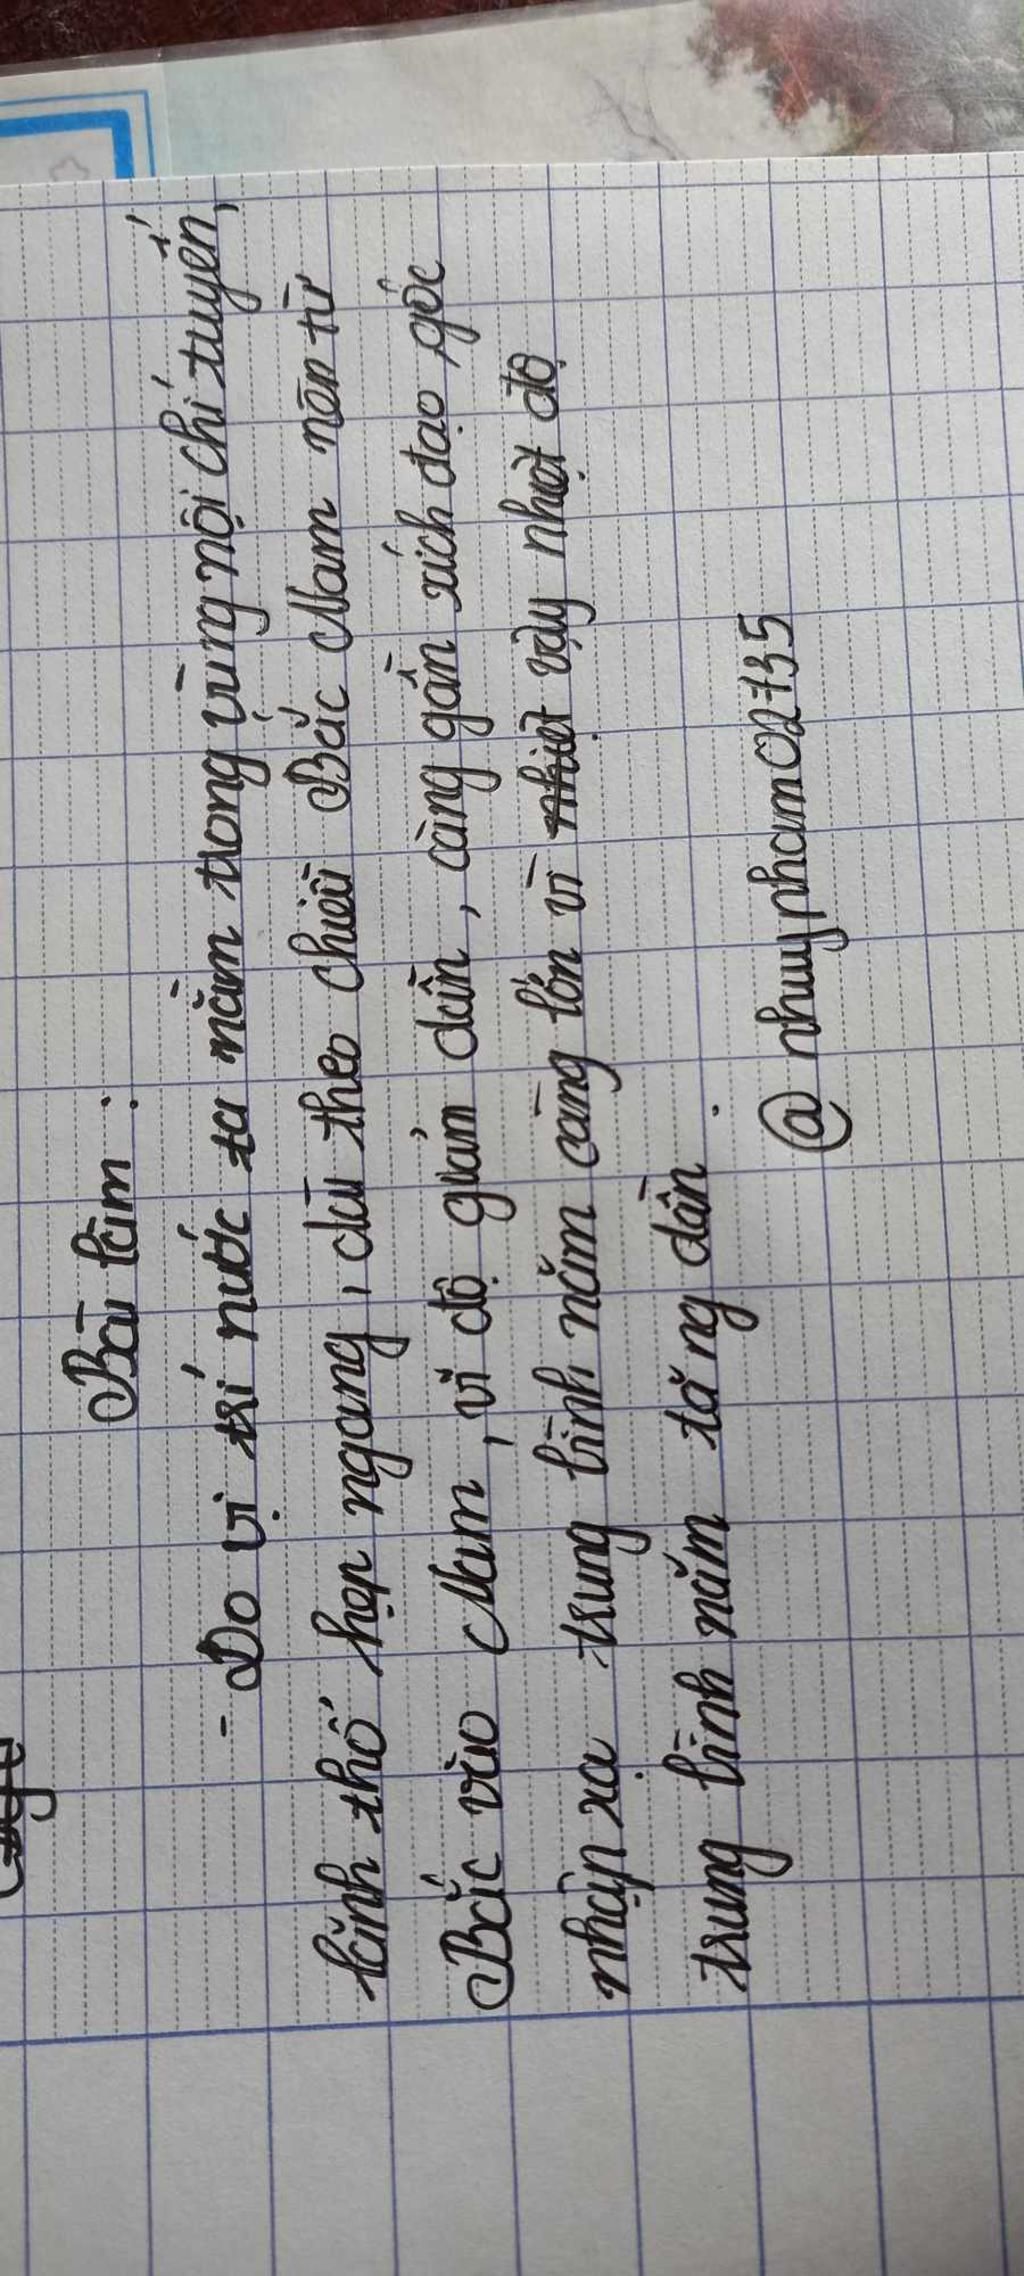 Bài làm :
- Do vị trí nước ta nằm trong vùng nội chí tuyến,
lãnh thổ hẹp ngang, dài theo chiều Bắc Nam nên từ
Bắc vào Nam, vĩ độ giảm dần, càng gần xích đạo, góc
nhập xạ trung bình năm càng lớn vì vậy nhiệt độ
trung bình năm tăng dần.
@ nhuypham02735